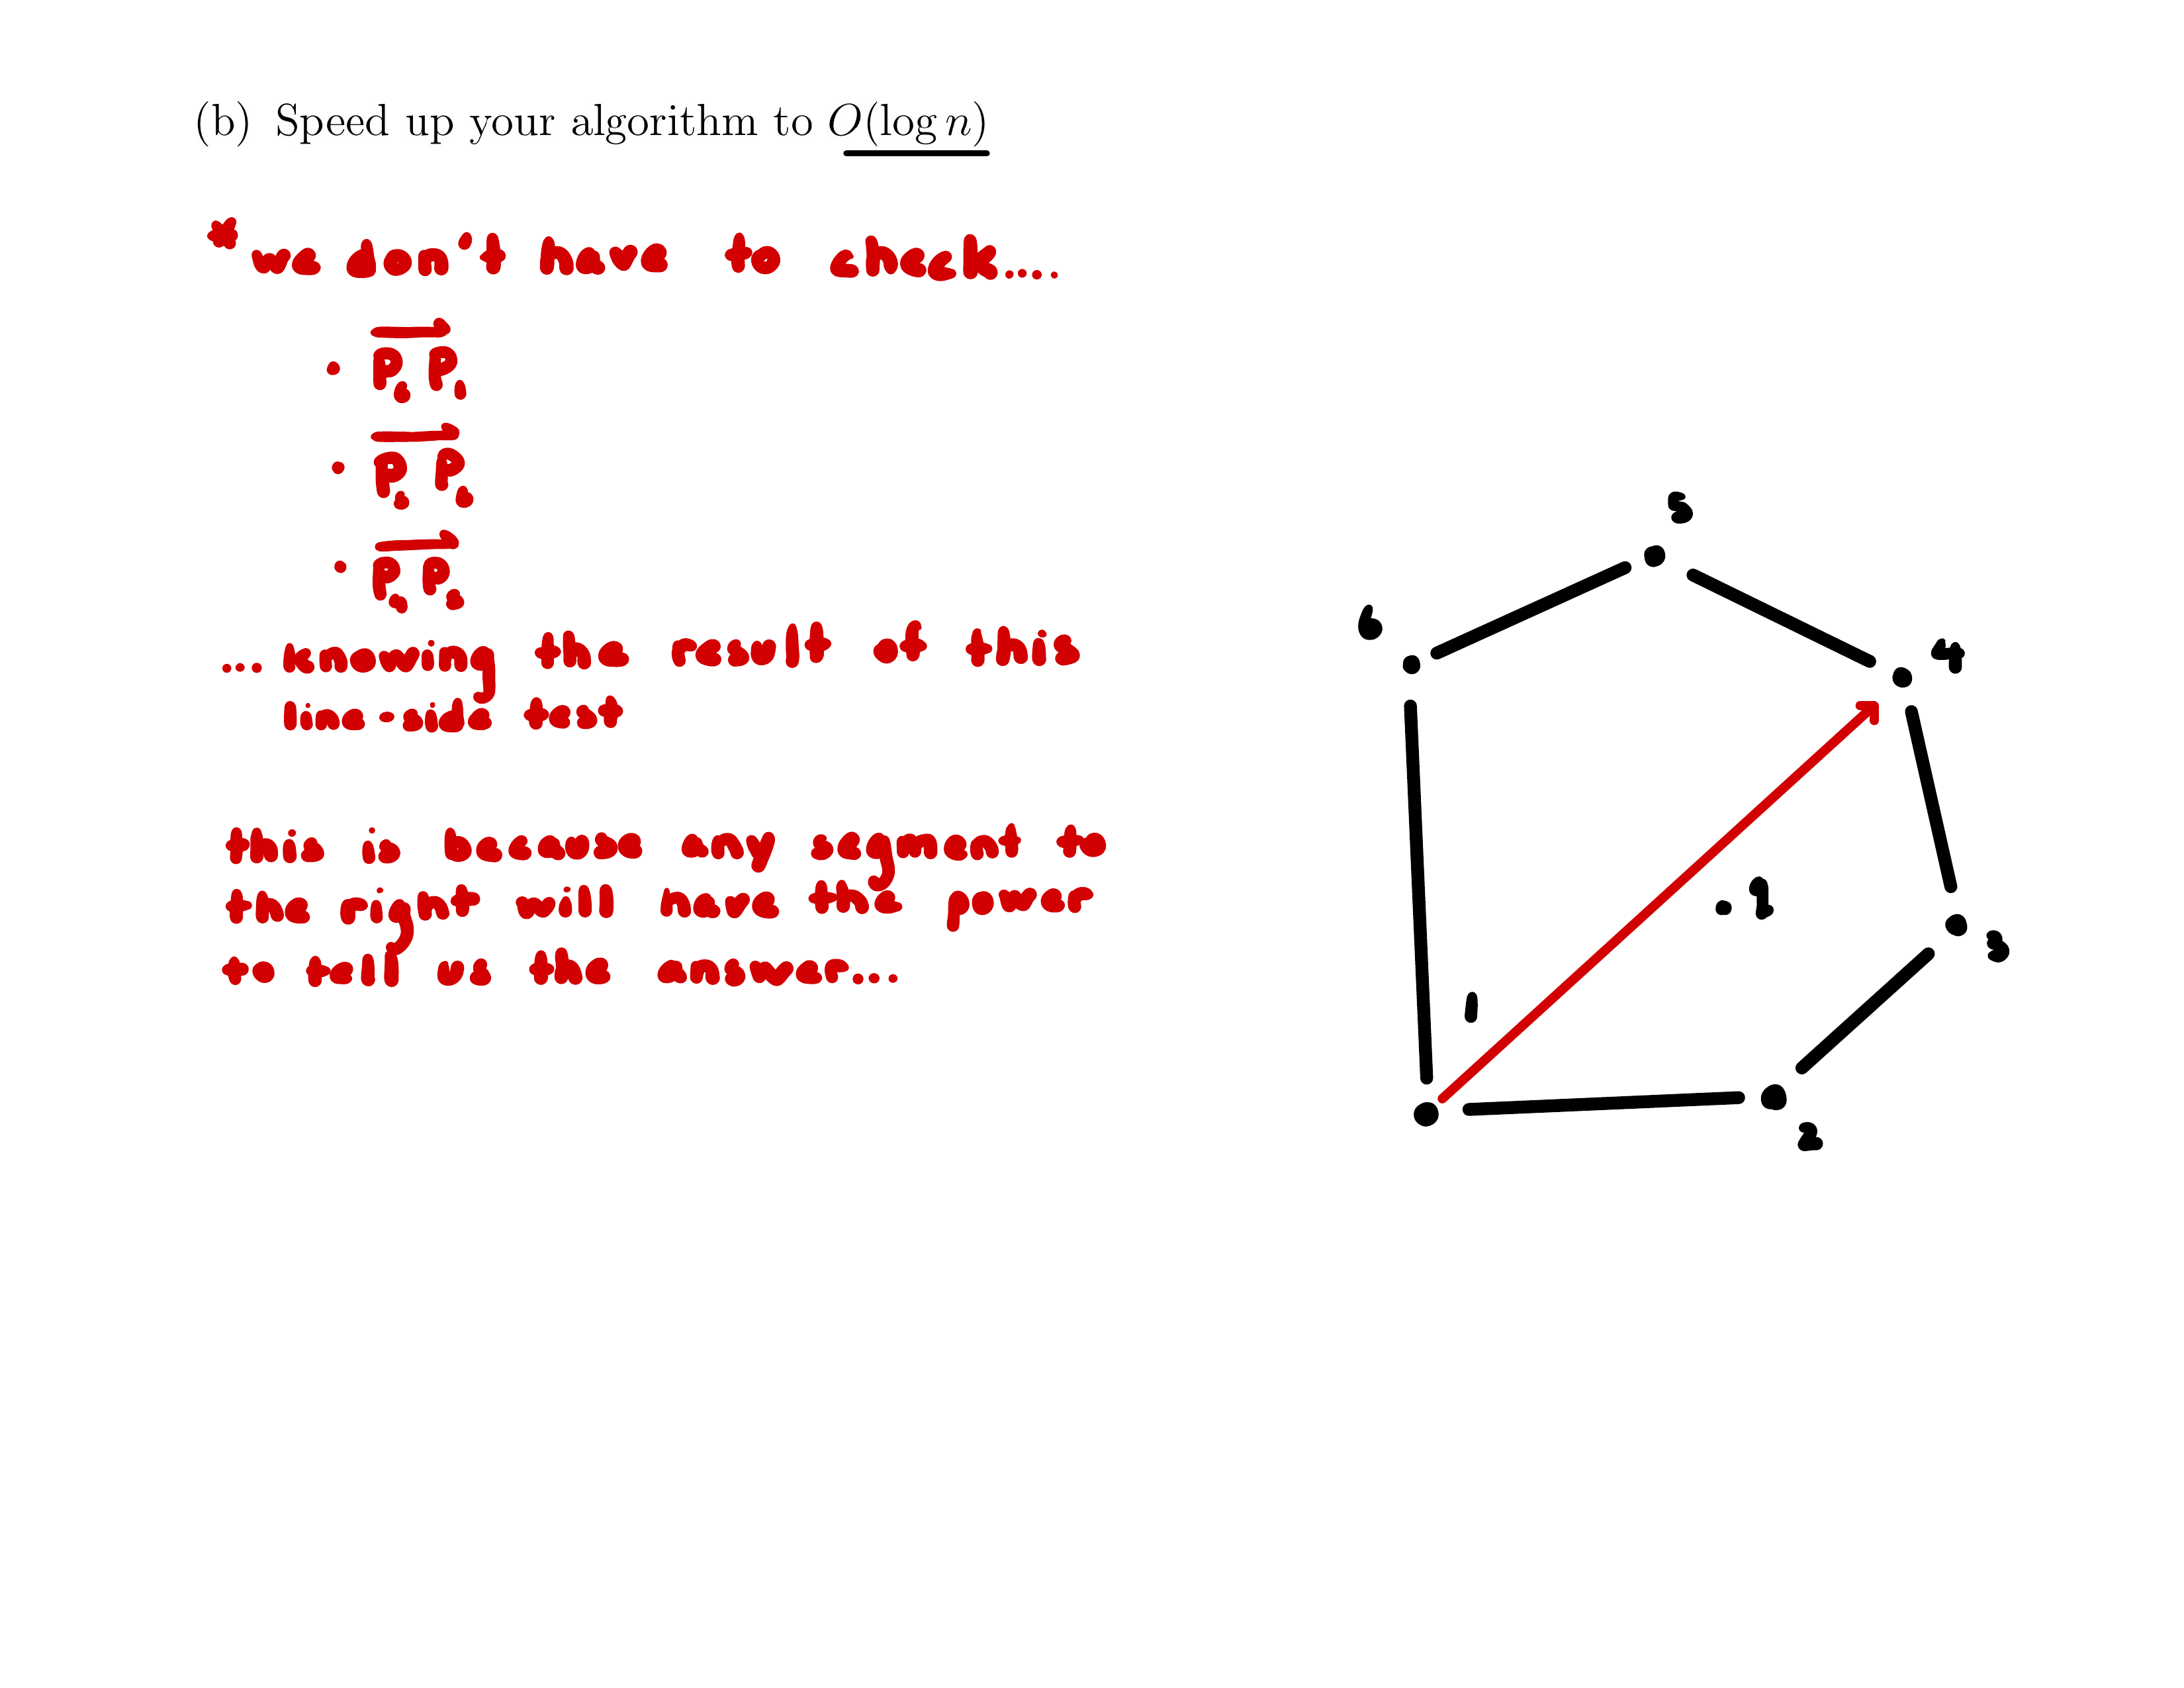 (b) Speed up your algorithm to O(log n)
* we don't have to check....
· P₆ P₁
· P₅ P₆
· P₄ P₅
.... knowing the result of this
line-side test
this is because any segment to
the right will have the power
to tell us the answer...
5
6
4
q
3
1
2